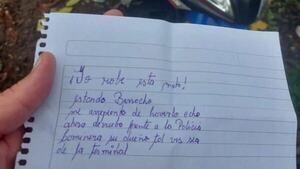 ¡Yo robe esta moto!
estando Borracho
me arrepiento de haverlo echo
ahora devuelvo frente a la Policia
Caminera su dueño tal ves sea
de la terminal